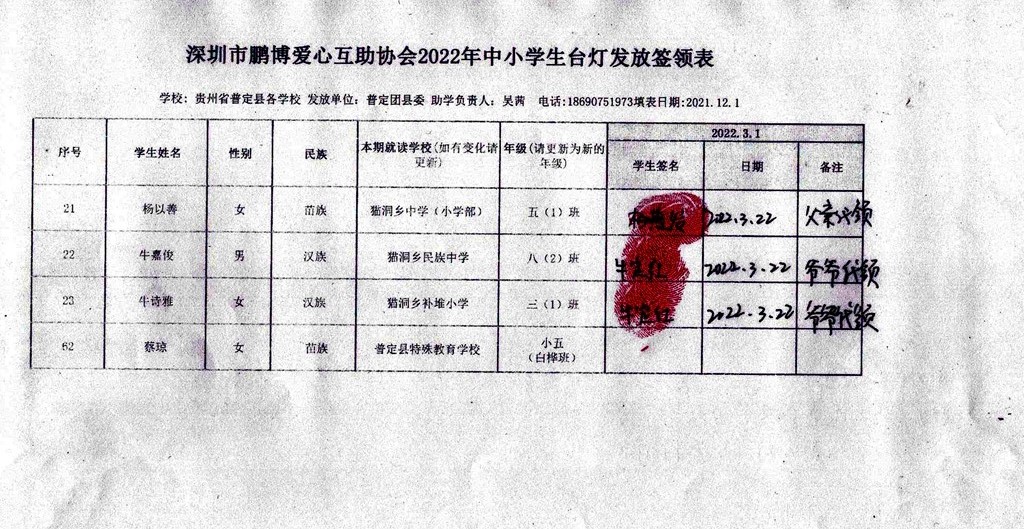 深圳市鹏博爱心互助协会2022年中小学生台灯发放签领表
学校：贵州省普定县各学校 发放单位：普定团县委 助学负责人：吴茜 电话:18690751973填表日期:2021.12.1
序号 学生姓名 性别 民族 本期就读学校(如有变化请更新) 年级(请更新为新的年级) 2022.3.1
学生签名 日期 备注
21 杨以善 女 苗族 猫洞乡中学（小学部） 五（1）班 2022.3.22 父亲代领
22 牛嘉俊 男 汉族 猫洞乡民族中学 八（2）班 2022.3.22 爷爷代领
23 牛诗雅 女 汉族 猫洞乡补堆小学 三（1）班 2022.3.22 爷爷代领
62 蔡琼 女 苗族 普定县特殊教育学校 小五
（白桦班）